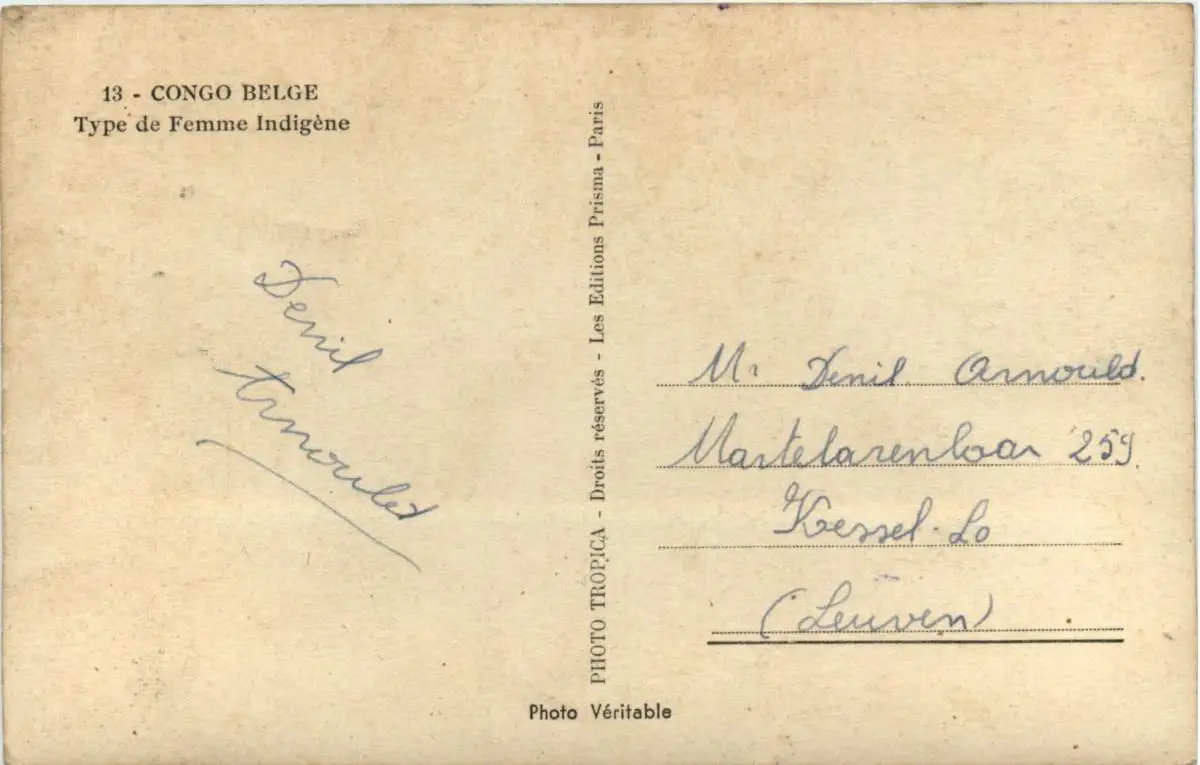 13 - CONGO BELGE
Type de Femme Indigène
Denil
Arnould
PHOTO TROPICA - Droits réservés - Les Editions Prisma - Paris
Mr Denil Arnould.
Martelarenlaan 259
Kessel-Lo
(Leuven)
Photo Véritable